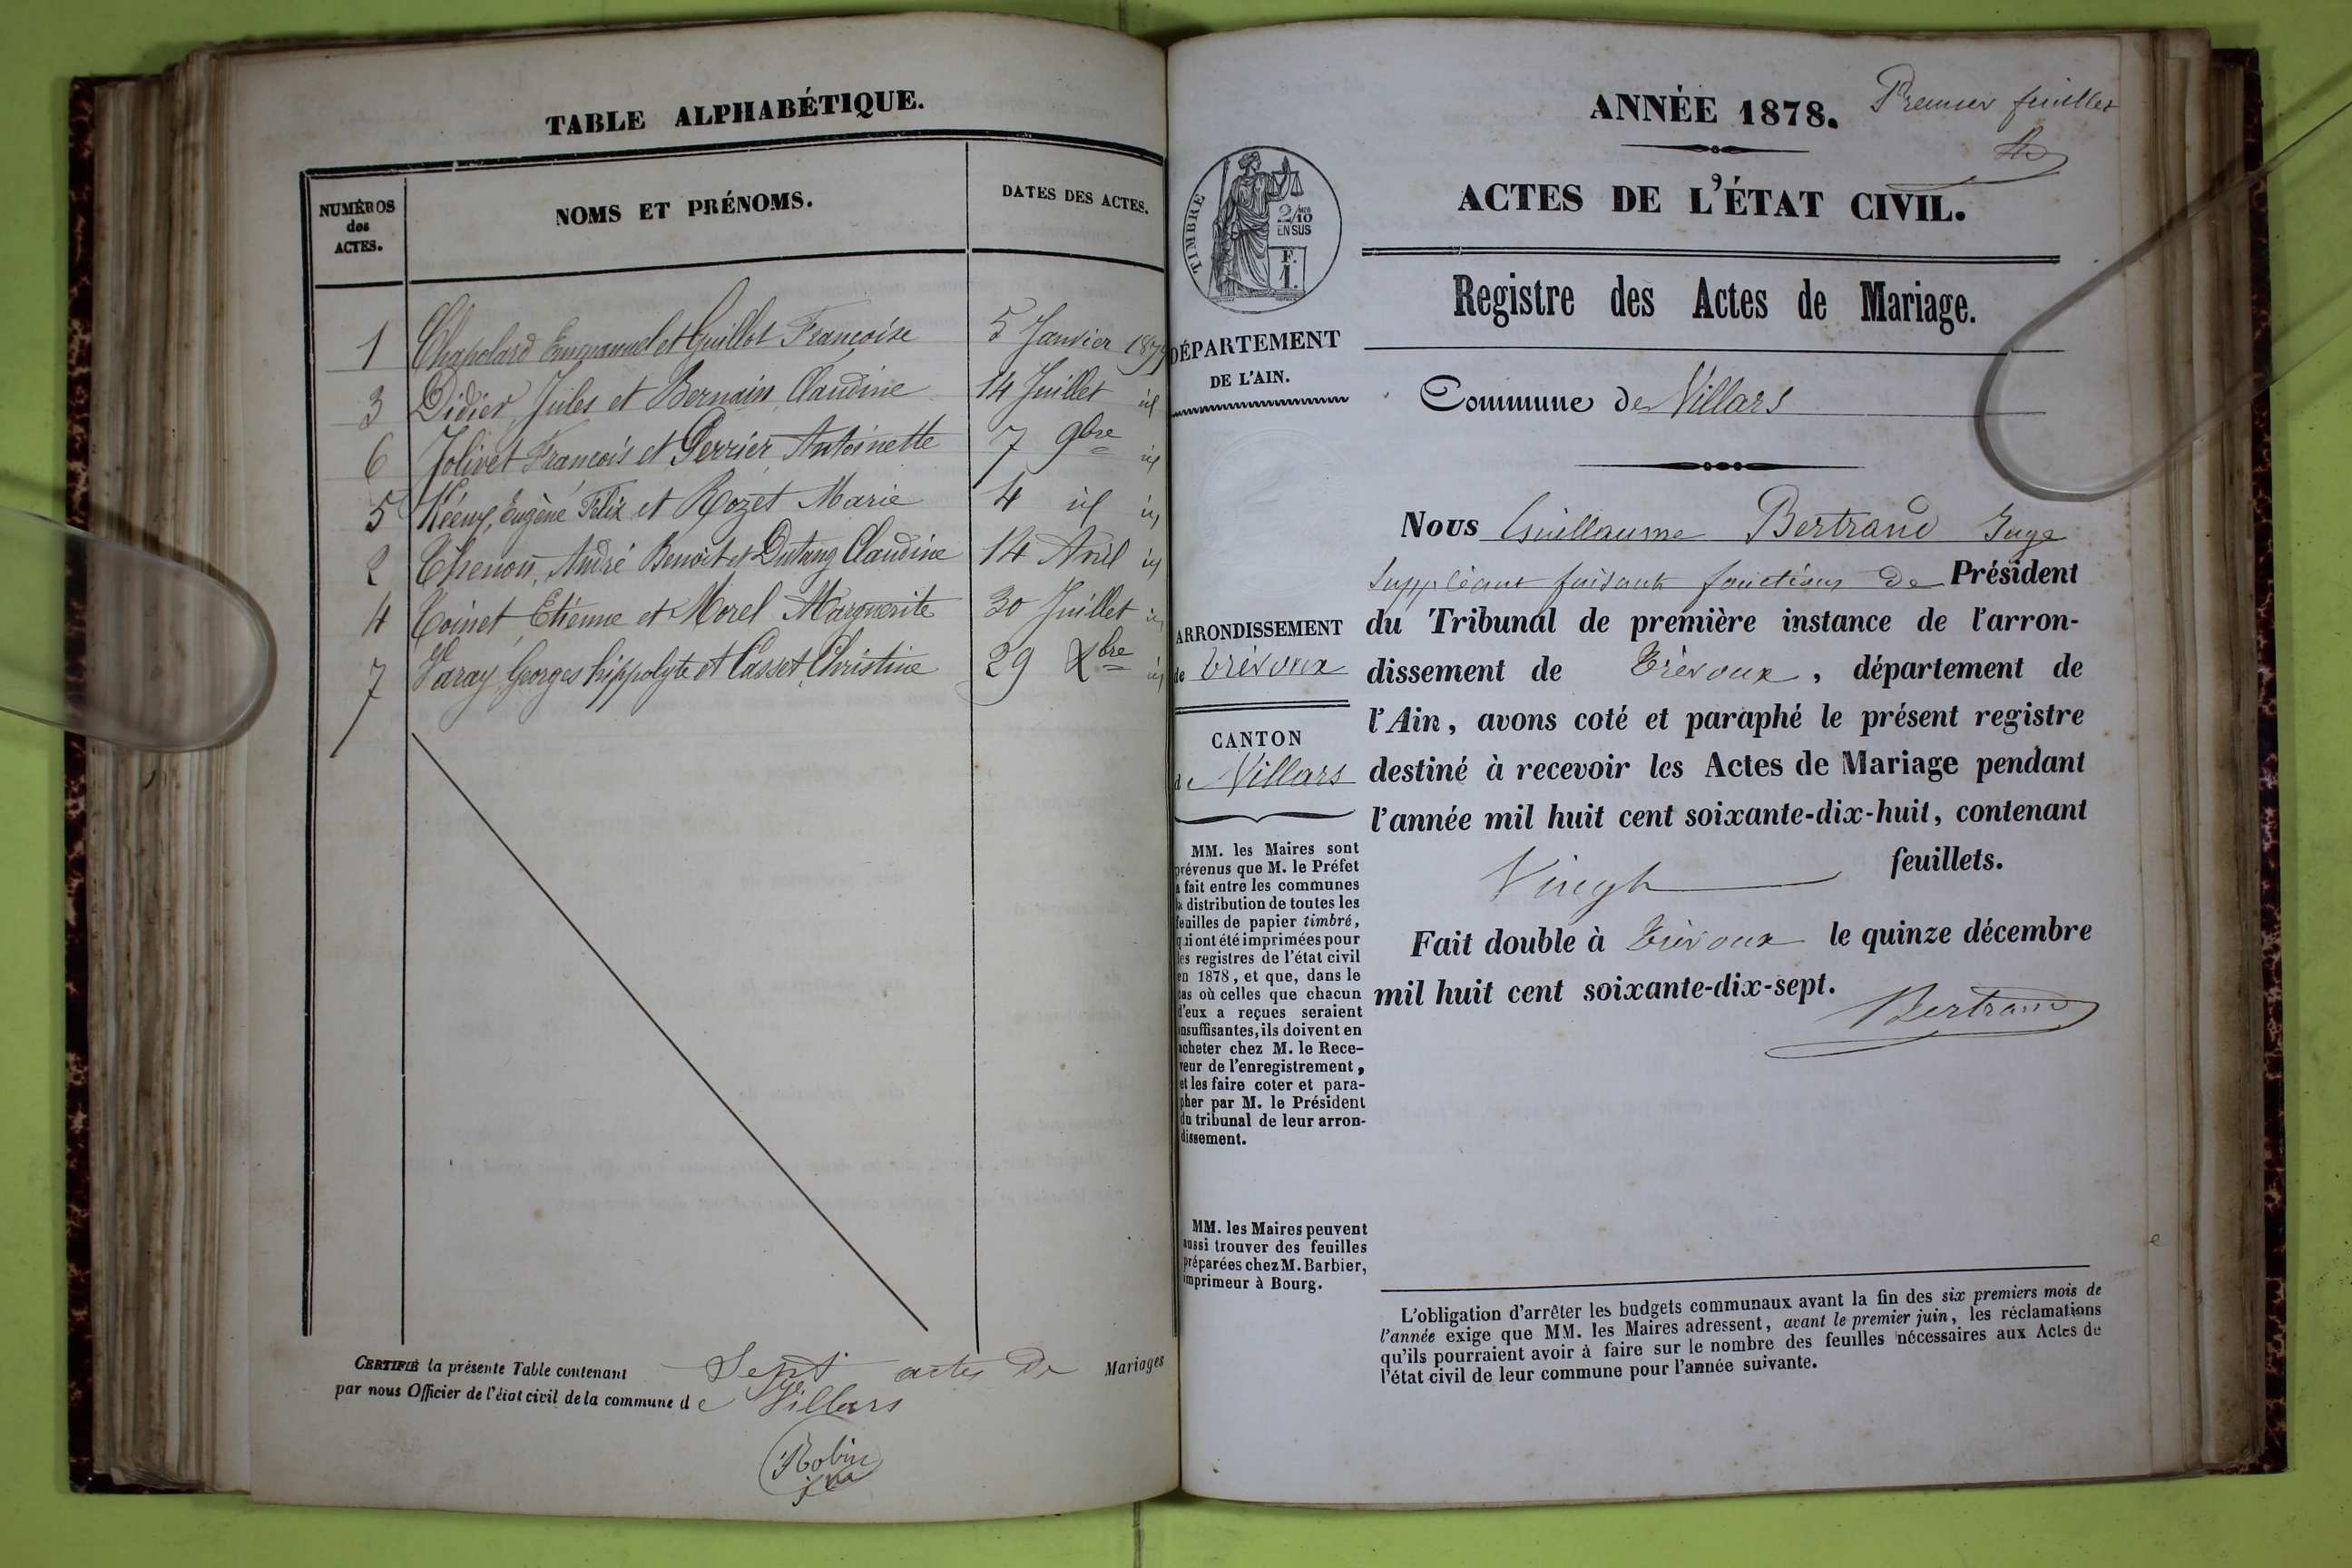 TABLE ALPHABÉTIQUE.
NUMÉROS
des
ACTES.
NOMS ET PRÉNOMS.
DATES DES ACTES.
1 Chapolard Emmanuel et Guillot Françoise 5 Janvier
3 Didier Jules et Bernain Claudine 14 Juillet id
6 Jolivet François et Perrier Antoinette 7 9bre id
5 Eugène Félix et Rozet Marie 4 id id
2 Thenon, André Benoît et Dutang Claudine 14 Avril id
4 Coinet, Etienne et Morel Marguerite 30 Juillet id
7 Varay Georges hippolyte et Casset Christine 29 Xbre id
CERTIFIÉ la présente Table contenant Sept actes de Mariages
par nous Officier de l'état civil de la commune de Villars
Robin
Premier feuillet
ANNÉE 1878.
ACTES DE L'ÉTAT CIVIL.
TIMBRE
2/10
EN SUS
F.
1.
Registre des Actes de Mariage.
DÉPARTEMENT
DE L'AIN.
Commune de Villars
Nous Guillaume Bertrand Juge
Suppléant faisant fonctions de Président
du Tribunal de première instance de l'arron-
dissement de Trévoux, département de
l'Ain, avons coté et paraphé le présent registre
destiné à recevoir les Actes de Mariage pendant
l'année mil huit cent soixante-dix-huit, contenant
Vingt feuillets.
Fait double à Trévoux le quinze décembre
mil huit cent soixante-dix-sept.
Bertrand
ARRONDISSEMENT
de Trévoux
CANTON
de Villars
MM. les Maires sont
prévenus que M. le Préfet
a fait entre les communes
la distribution de toutes les
feuilles de papier timbré,
qui ont été imprimées pour
les registres de l'état civil
en 1878, et que, dans le
cas où celles que chacun
d'eux a reçues seraient
insuffisantes, ils doivent en
acheter chez M. le Rece-
veur de l'enregistrement,
et les faire coter et para-
pher par M. le Président
du tribunal de leur arron-
dissement.
MM. les Maires peuvent
aussi trouver des feuilles
préparées chez M. Barbier,
imprimeur à Bourg.
L'obligation d'arrêter les budgets communaux avant la fin des six premiers mois de
l'année exige que MM. les Maires adressent, avant le premier juin, les réclamations
qu'ils pourraient avoir à faire sur le nombre des feuilles nécessaires aux Actes de
l'état civil de leur commune pour l'année suivante.